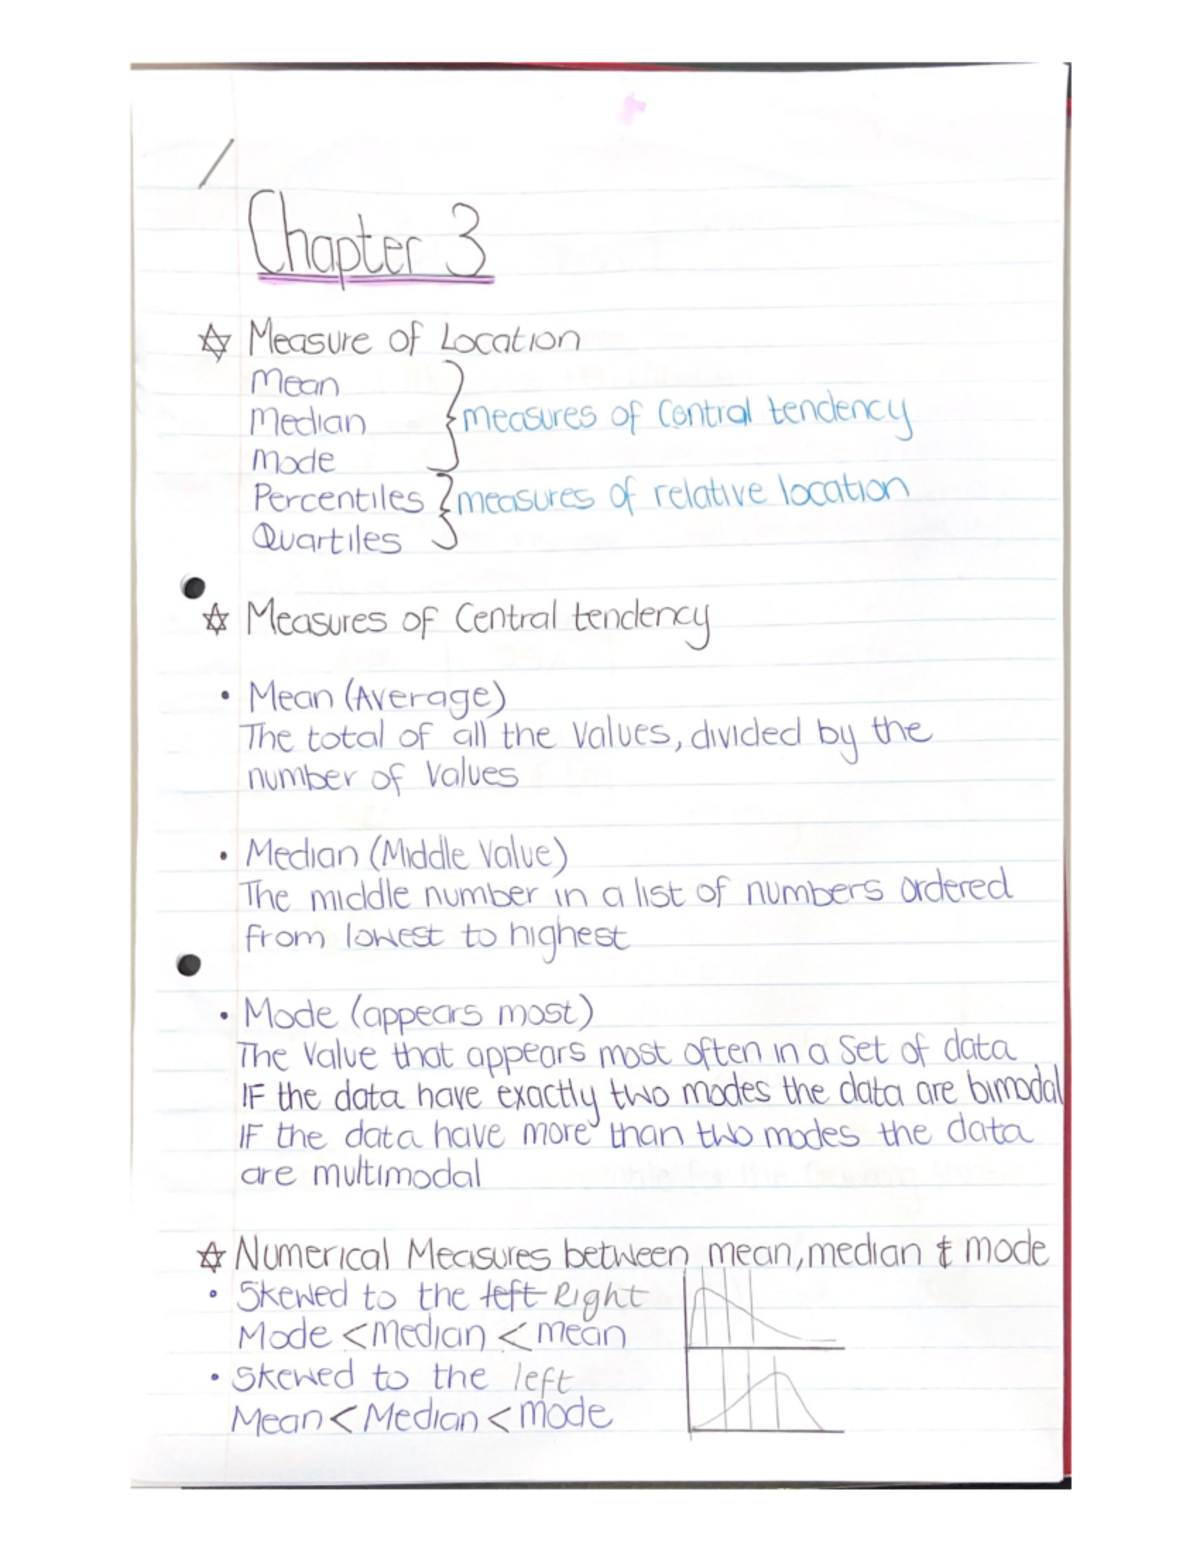 Chapter 3
Measure of Location
Mean
Median
measures of Central tendency
Mode
Percentiles
measures of relative location
Quartiles
Measures of Central tendency
• Mean (Average)
The total of all the Values, divided by the
number of Values
• Median (Middle Value)
The middle number in a list of numbers ordered
from lowest to highest
• Mode (appears most)
The Value that appears most often in a Set of data
IF the data have exactly two modes the data are bimodal
IF the data have more than two modes the data
are multimodal
Numerical Measures between mean, median & mode
• Skewed to the left Right
Mode < median < mean
• Skewed to the left
Mean < Median < mode